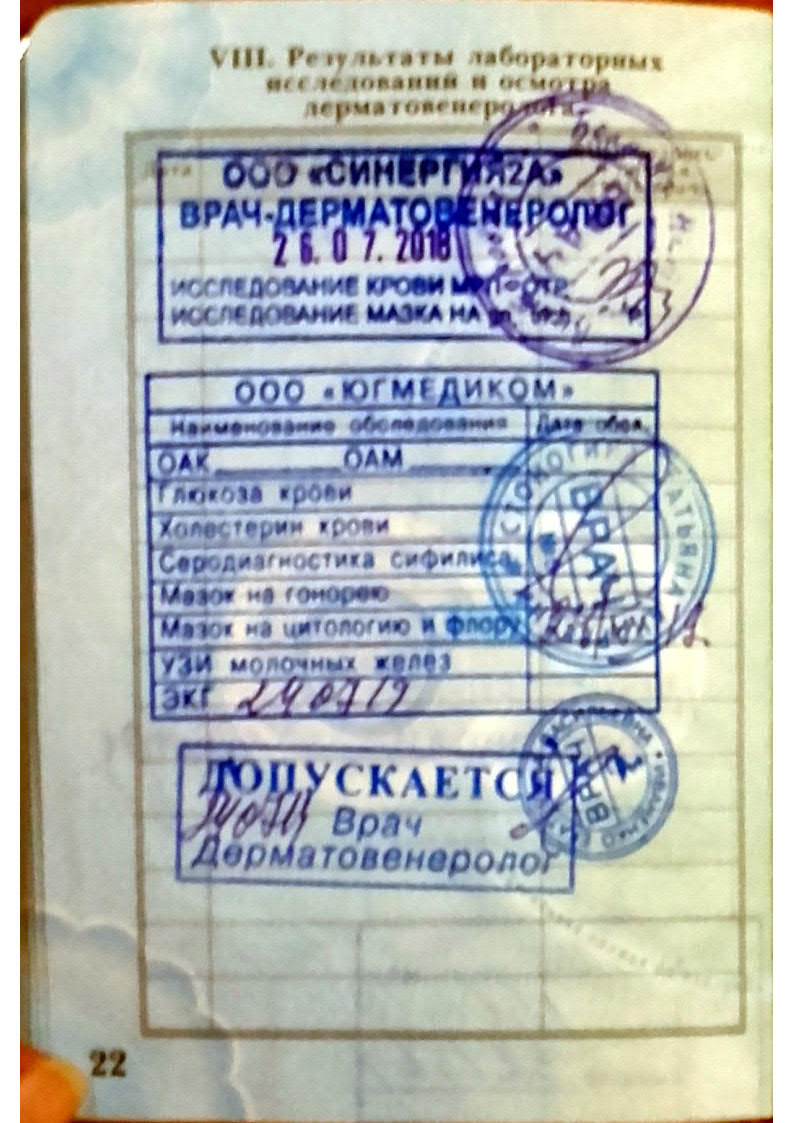 VIII. Результаты лабораторных
исследований и осмотра
дерматовенеролога
Дата
ООО «СИНЕРГИЯ2А»
ВРАЧ-ДЕРМАТОВЕНЕРОЛОГ
26.07.2018
ИССЛЕДОВАНИЕ КРОВИ МРП-ОТР.
ИССЛЕДОВАНИЕ МАЗКА НА
ООО «ЮГМЕДИКОМ»
Наименование обследования Дата обсл.
ОАК ОАМ
Глюкоза крови
Холестерин крови
Серодиагностика сифилиса
Мазок на гонорею
Мазок на цитологию и флору
УЗИ молочных желез
ЭКГ 290719
ВРАЧ
ТАТЬЯНА
ДОПУСКАЕТСЯ
Врач
Дерматовенеролог
ВАСИЛЬЕВНА
ВРАЧ
22